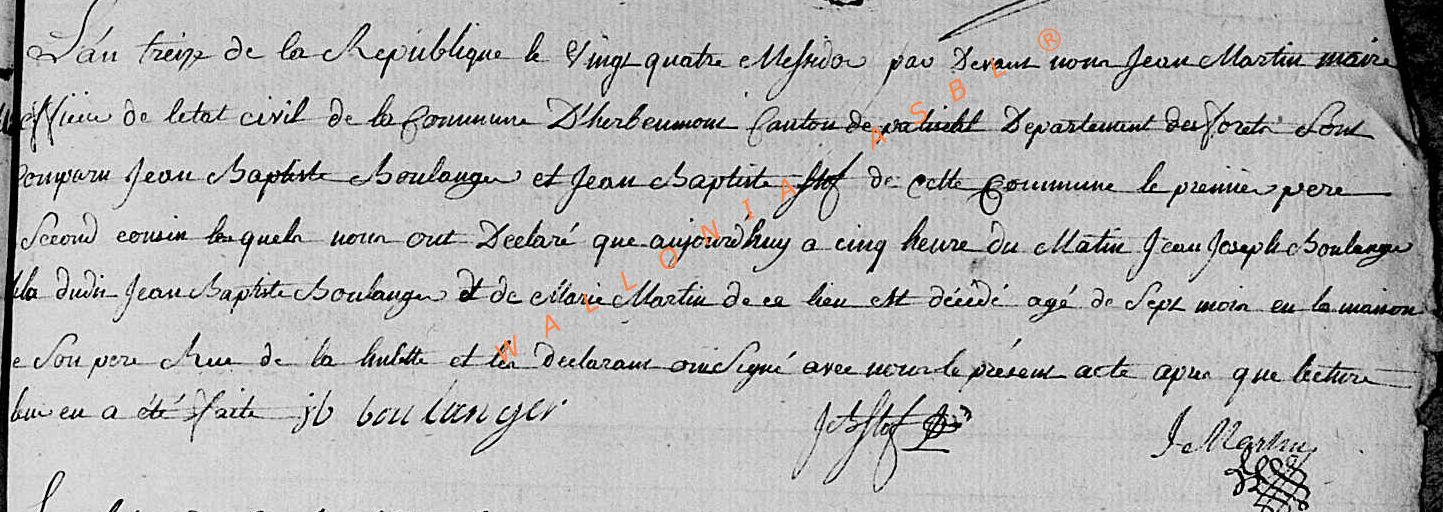 L'an treize de la Republique le vingt quatre Messidor par devant nous Jean Martin maire
officier de letat civil de la Commune D'herbeumont Canton de paliseul Departement des forets Sont
Comparu Jean Baptiste Boulanger et Jean Baptiste Stof de cette Commune le premier pere
Second cousin lesquels nous ont Declaré que aujourd'huy a cinq heure du Matin Jean Joseph Boulanger
fils dudit Jean Baptiste Boulanger et de Marie Martin de ce lieu est décédé agé de Sept mois en la maison
e Son pere Rue de la hulette et les declarant ont Signé avec nous le présent acte apres que lecture
leur en a été faite jb boulanger JBStof J Martin
WALLONIA ASBL ®